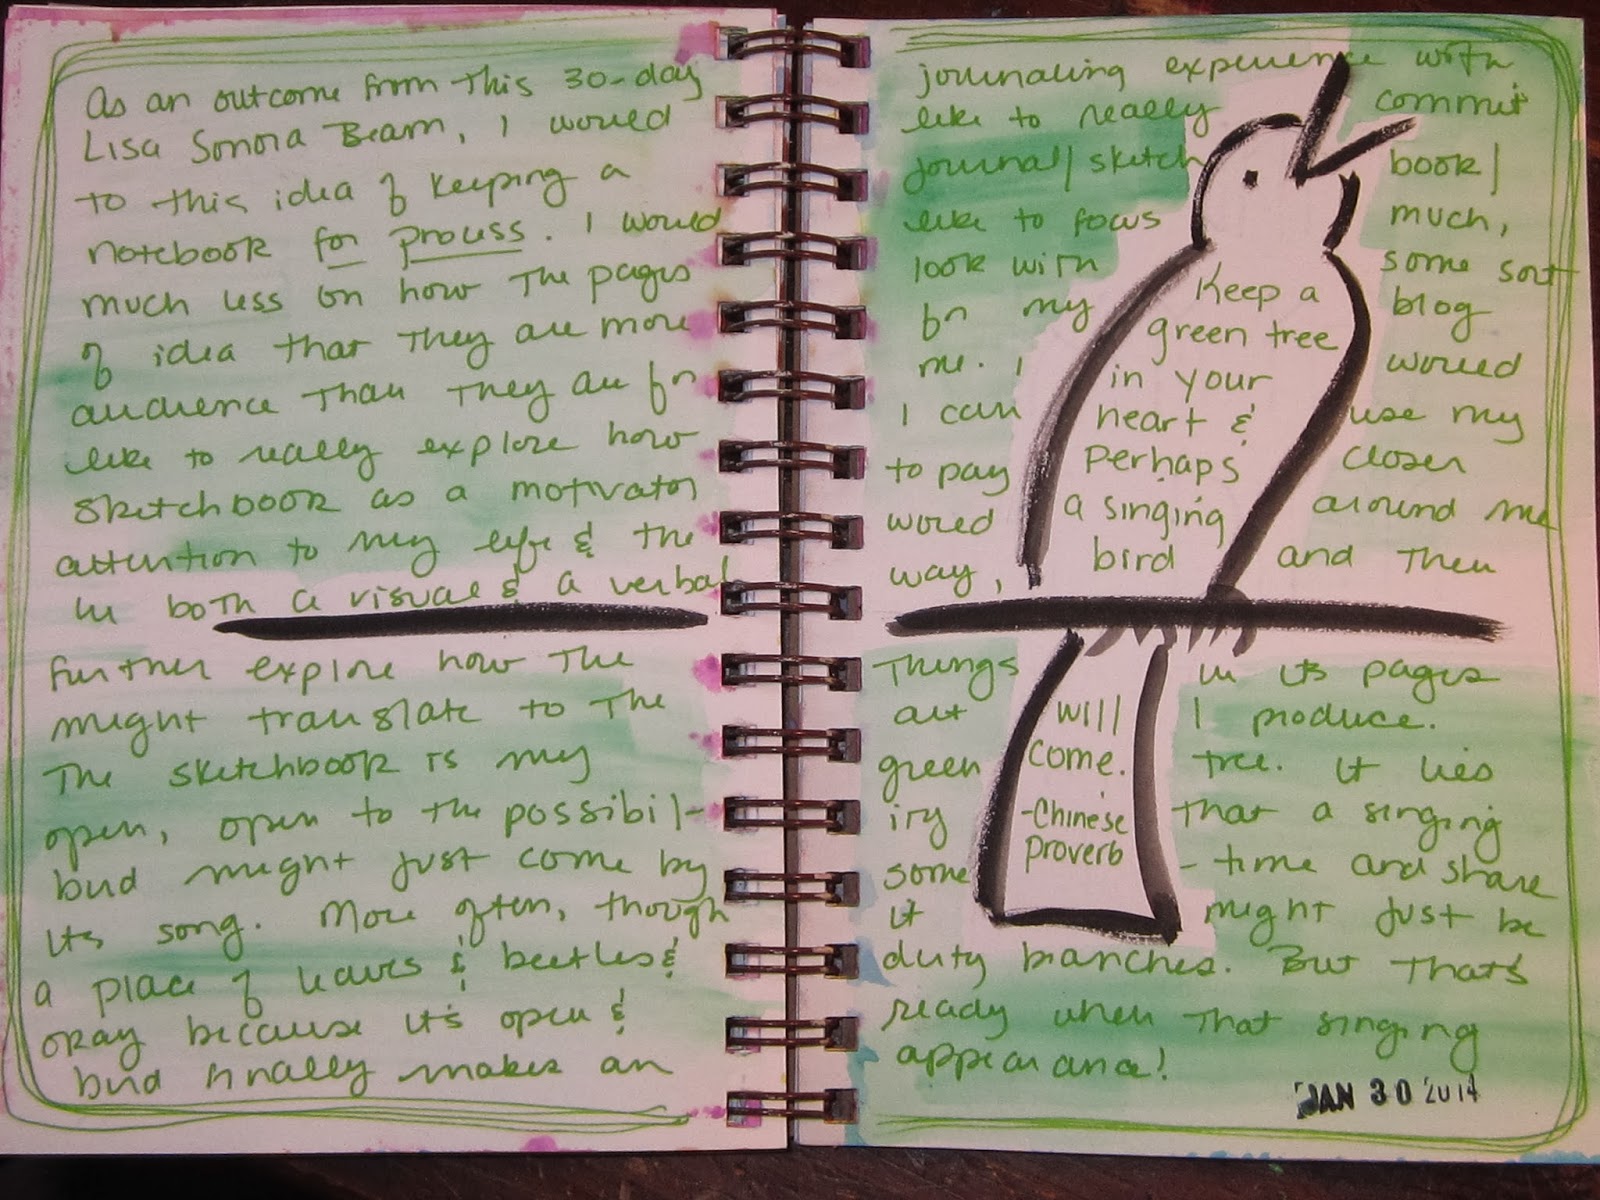 As an outcome from this 30-day journaling experience with
Lisa Sonora Beam, I would like to really commit
to this idea of keeping a journal/sketch book/
notebook for process. I would like to focus much,
much less on how the pages look with some sort
of idea that they are more for my blog
audience than they are for me. I would
like to really explore how I can use my
sketchbook as a motivator to pay closer
attention to my life & the world around me
in both a visual & a verbal way, and then
further explore how the things in its pages
might translate to the art I produce.
The sketchbook is my green tree. It lies
open, open to the possibil- ity that a singing
bird might just come by some - time and share
its song. More often, though it might just be
a place of leaves & beetles & dirty branches. But that's
okay because it's open & ready when that singing
bird finally makes an appearance!
Keep a
green tree
in your
heart &
perhaps
a singing
bird
will
come.
-Chinese
proverb
JAN 30 2014